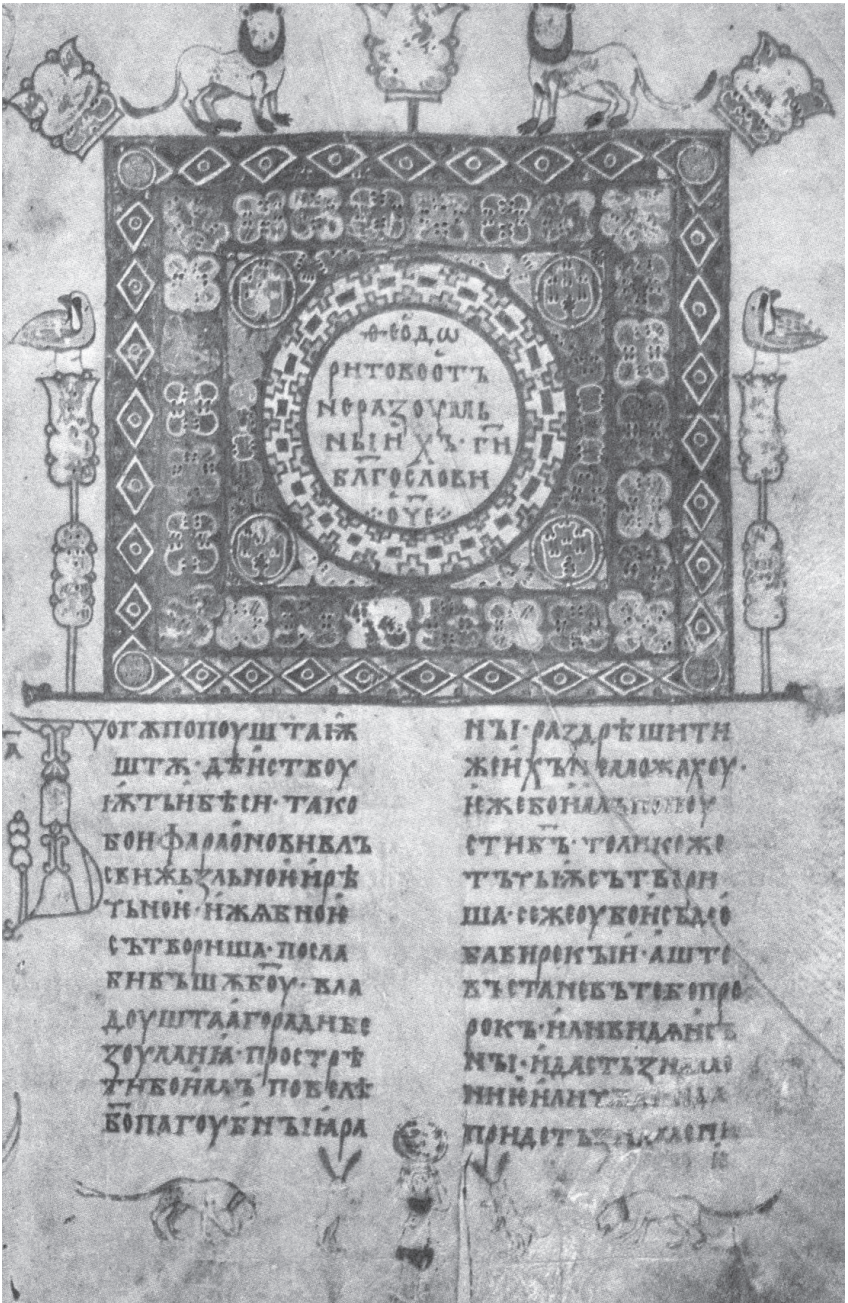 Ѳео́дѡ
ритовоотъ
неразоумь
ныихъ· г҃и
бл҃гослови
о҃че
огдапопоуштаѭ
штѫ·дѣиствоу
ѭтьибѣси·тако
боифараоновивлъ
свижьзльноѥ·ирѣ
тьноѥ·ижѧбноѥ
сътвориша·посла
бивъшѫб҃оу·вла
доуштаагорадибе
зоумания·прострѣ
тибоимъповелѣ
б҃опагоубныира
ны·раздрѣшити
жеихънеможахоу·
ѥжебоимъпопоу
стиб҃ъ·толикоже
тътьѭсътвори
ша·сежеоубоисьдео
бабирекыи·аште
въстаневътебепро
рокъ·иливидѧисъ
ны·идастьзнаме
ниѥили
придетьзнамени
ѥ